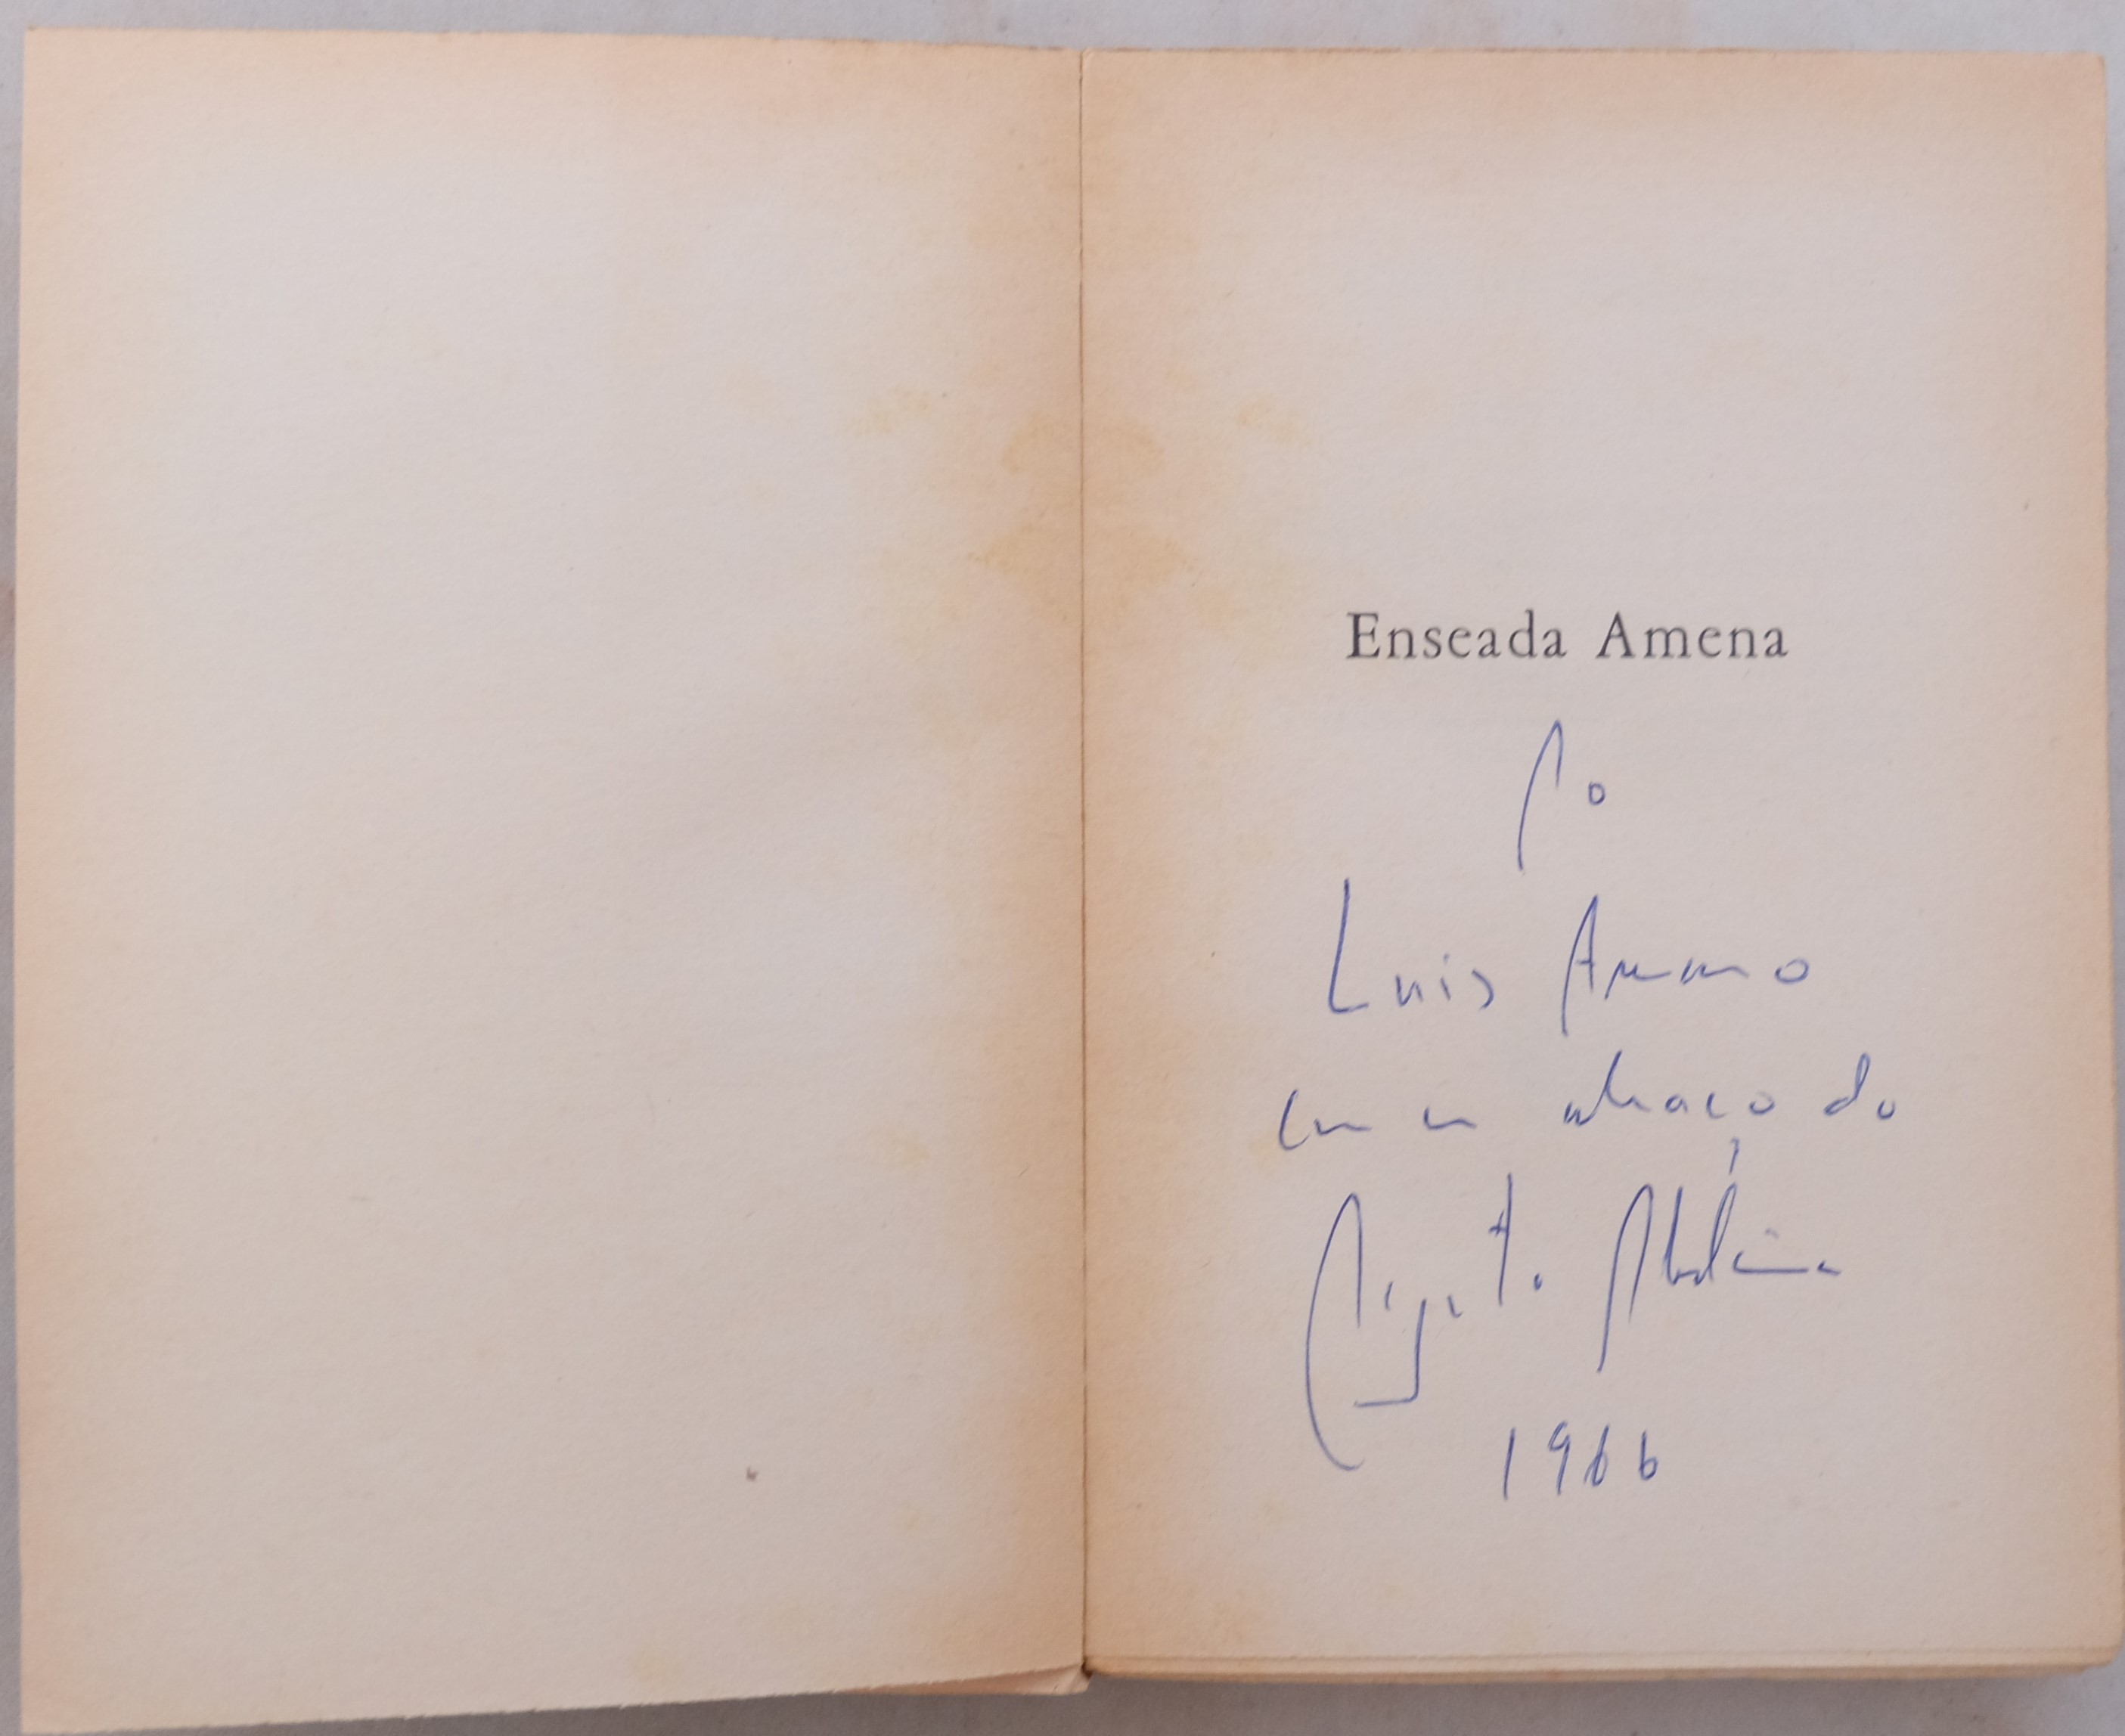 Enseada Amena
Ao
Luis Amaro
com um abraço do
Augusto Abelaira
1966